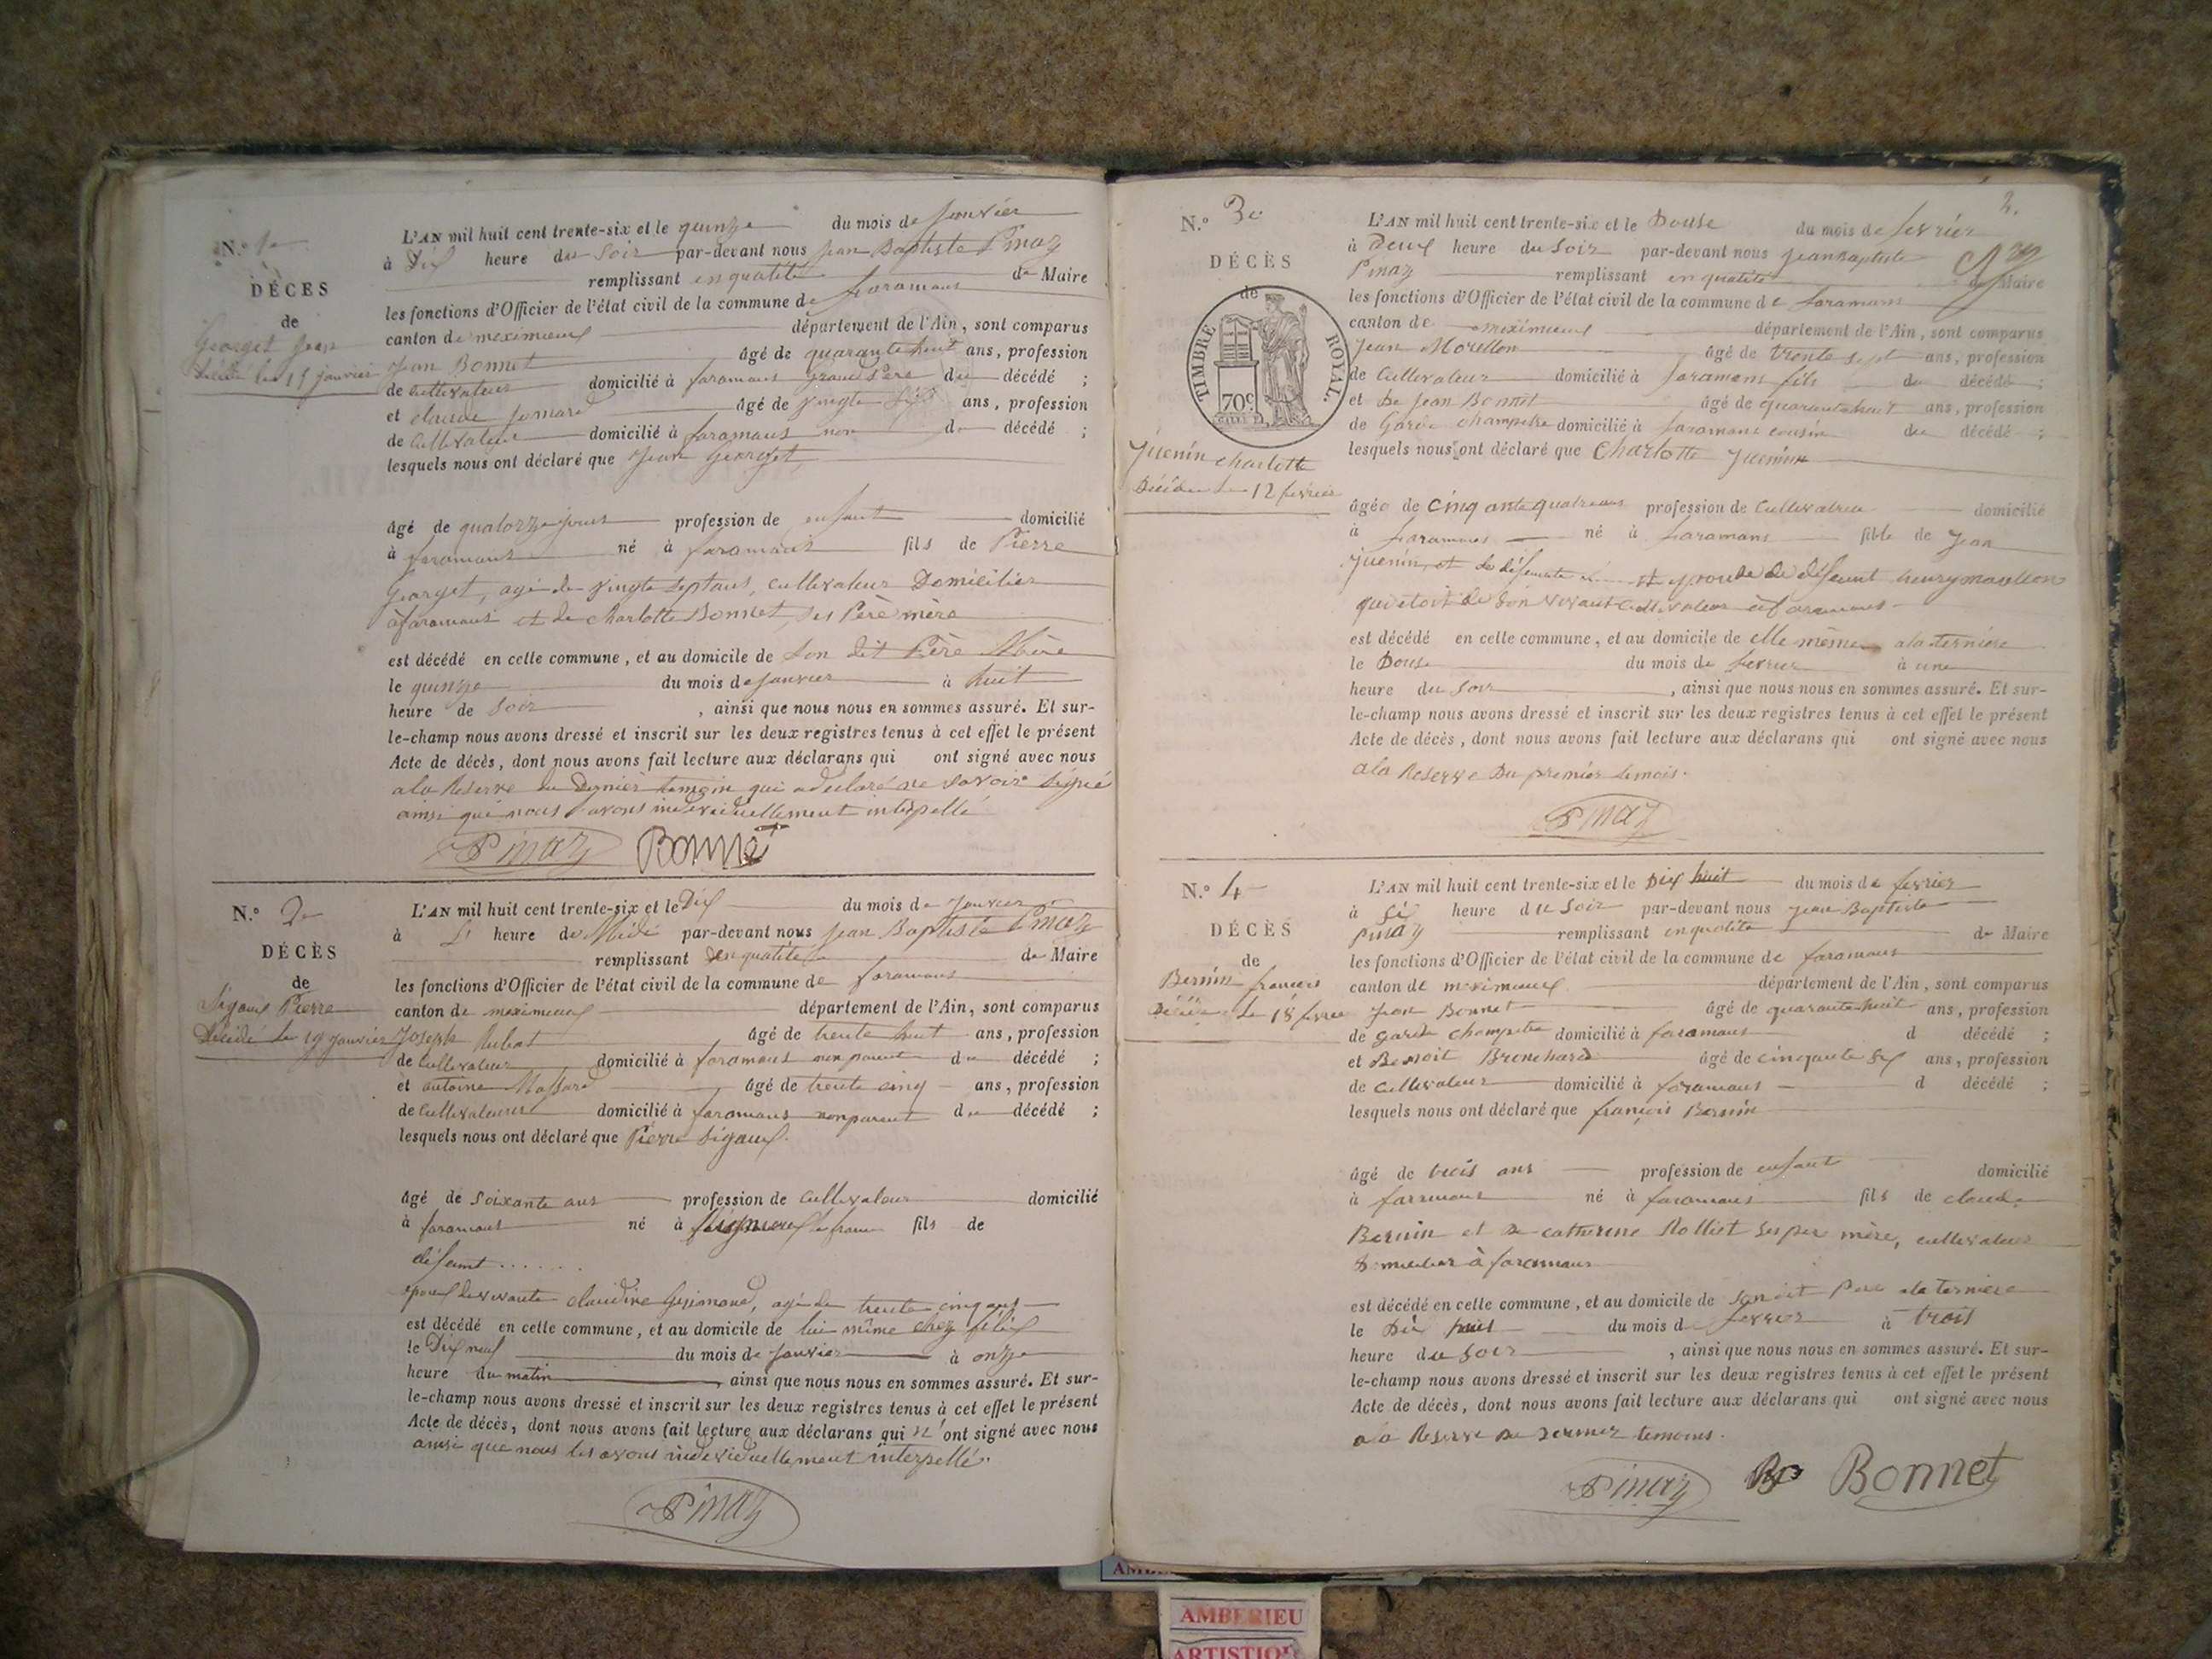 N.º 1er
DÉCÈS
de
Georget Jean
Décédé le 15 janvier
L'AN mil huit cent trente-six et le quinze du mois de janvier
à Dix heure du Soir par-devant nous Jean Baptiste Pinaz
remplissant en qualité de Maire
les fonctions d'Officier de l'état civil de la commune de faramans
canton de meximieux département de l'Ain, sont comparus
Jean Bonnet âgé de quarante huit ans, profession
de Cultivateur domicilié à faramans grand Père du décédé ;
et claude Jomard âgé de vingt ans, profession
de Cultivateur domicilié à faramans non d décédé ;
lesquels nous ont déclaré que Jean Georget
âgé de quatorze jours profession de enfant domicilié
à faramans né à faramans fils de Pierre
Georget, agé de vingte sept ans, cultivateur Domicilier
à faramans et de Charlotte Bonnet, ses Père mère
est décédé en celle commune, et au domicile de Son dit Père Mère
le quinze du mois de janvier à huit
heure de Soir , ainsi que nous nous en sommes assuré. Et sur-
le-champ nous avons dressé et inscrit sur les deux registres tenus à cet effet le présent
Acte de décès, dont nous avons fait lecture aux déclarans qui ont signé avec nous
ala Reserve du Dernier temoin qui a declaré ne savoir signé
ainsi que nous l'avons individuellement interpellé
Pinaz Bonnet
N.º 2
DÉCÈS
de
Sigaux Pierre
Décédé le 19 janvier
L'AN mil huit cent trente-six et le Dix du mois de janvier
à heure de Midi par-devant nous Jean Baptiste Pinaz
remplissant en qualité de Maire
les fonctions d'Officier de l'état civil de la commune de faramans
canton de meximieux département de l'Ain, sont comparus
Joseph âgé de trente huit ans, profession
de Cultivateur domicilié à faramans non parent du décédé ;
et antoine Massard âgé de trente cinq ans, profession
de Cultivateur domicilié à faramans non parent du décédé ;
lesquels nous ont déclaré que Pierre Sigaux.
âgé de Soixante ans profession de Cultivateur domicilié
à faramans né à fils de
défunt . . . . . .
epoux de vivante claudine, agé de trente cinq ans
est décédé en celle commune, et au domicile de lui même chez
le Dix neuf du mois de janvier à onze
heure du matin ainsi que nous nous en sommes assuré. Et sur-
le-champ nous avons dressé et inscrit sur les deux registres tenus à cet effet le présent
Acte de décès, dont nous avons fait lecture aux déclarans qui n'ont signé avec nous
ainsi que nous les avons individuellement interpellé.
Pinaz
2.
N.º 3
DÉCÈS
de
TIMBRE ROYAL.
70c
Juenin Charlotte
Décédée le 12 fevrier
L'AN mil huit cent trente-six et le Douse du mois de fevrier
à Deux heure du Soir par-devant nous Jean Baptiste
Pinaz remplissant en qualité de Maire
les fonctions d'Officier de l'état civil de la commune de faramans
canton de meximieux département de l'Ain, sont comparus
Jean Morellon âgé de trente sept ans, profession
de Cultivateur domicilié à faramans fils du décédé ;
et De Jean Bonnet âgé de quarante huit ans, profession
de Garde champetre domicilié à faramans cousin du décédé ;
lesquels nous ont déclaré que Charlotte Juenin
âgée de Cinquante quatre ans profession de Cultivatrice domicilié
à faramans né à faramans fille de Jean
Juenin, et de défunte et epouse de défunt
qui etoit de Son vivant Cultivateur à faramans
est décédé en celle commune, et au domicile de elle même ala terniere
le Douse du mois de fevrier à une
heure du Soir , ainsi que nous nous en sommes assuré. Et sur-
le-champ nous avons dressé et inscrit sur les deux registres tenus à cet effet le présent
Acte de décès, dont nous avons fait lecture aux déclarans qui ont signé avec nous
ala Reserve Du premier temois.
Pinaz
N.º 4
DÉCÈS
de
Bernin francois
Décédé le 18 fevrier
L'AN mil huit cent trente-six et le Dix huit du mois de fevrier
à Six heure du Soir par-devant nous Jean Baptiste
Pinaz remplissant en qualité de Maire
les fonctions d'Officier de l'état civil de la commune de faramans
canton de meximieux département de l'Ain, sont comparus
Jean Bonnet âgé de quarante huit ans, profession
de Garde Champetre domicilié à faramans d décédé ;
et Benoit Bronchard âgé de cinquante Six ans, profession
de Cultivateur domicilié à faramans d décédé ;
lesquels nous ont déclaré que françois Bernin
âgé de trois ans profession de enfant domicilié
à faramans né à faramans fils de claude
Bernin et De catherine Rolliet ses per mère, cultivateur
à faramans
est décédé en celle commune, et au domicile de Son dit Pere ala terniere
le Dix huit du mois de fevrier à trois
heure du Soir , ainsi que nous nous en sommes assuré. Et sur-
le-champ nous avons dressé et inscrit sur les deux registres tenus à cet effet le présent
Acte de décès, dont nous avons fait lecture aux déclarans qui ont signé avec nous
ala Reserve De Dernier temoins.
Pinaz Bonnet
AMBERIEU
ARTISTIQ